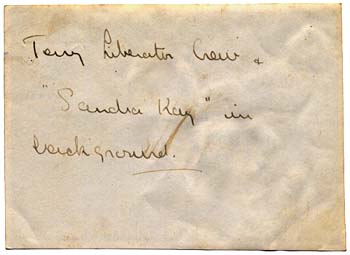 Terry Liberator Crew &
"Sandra Kay" in
background.